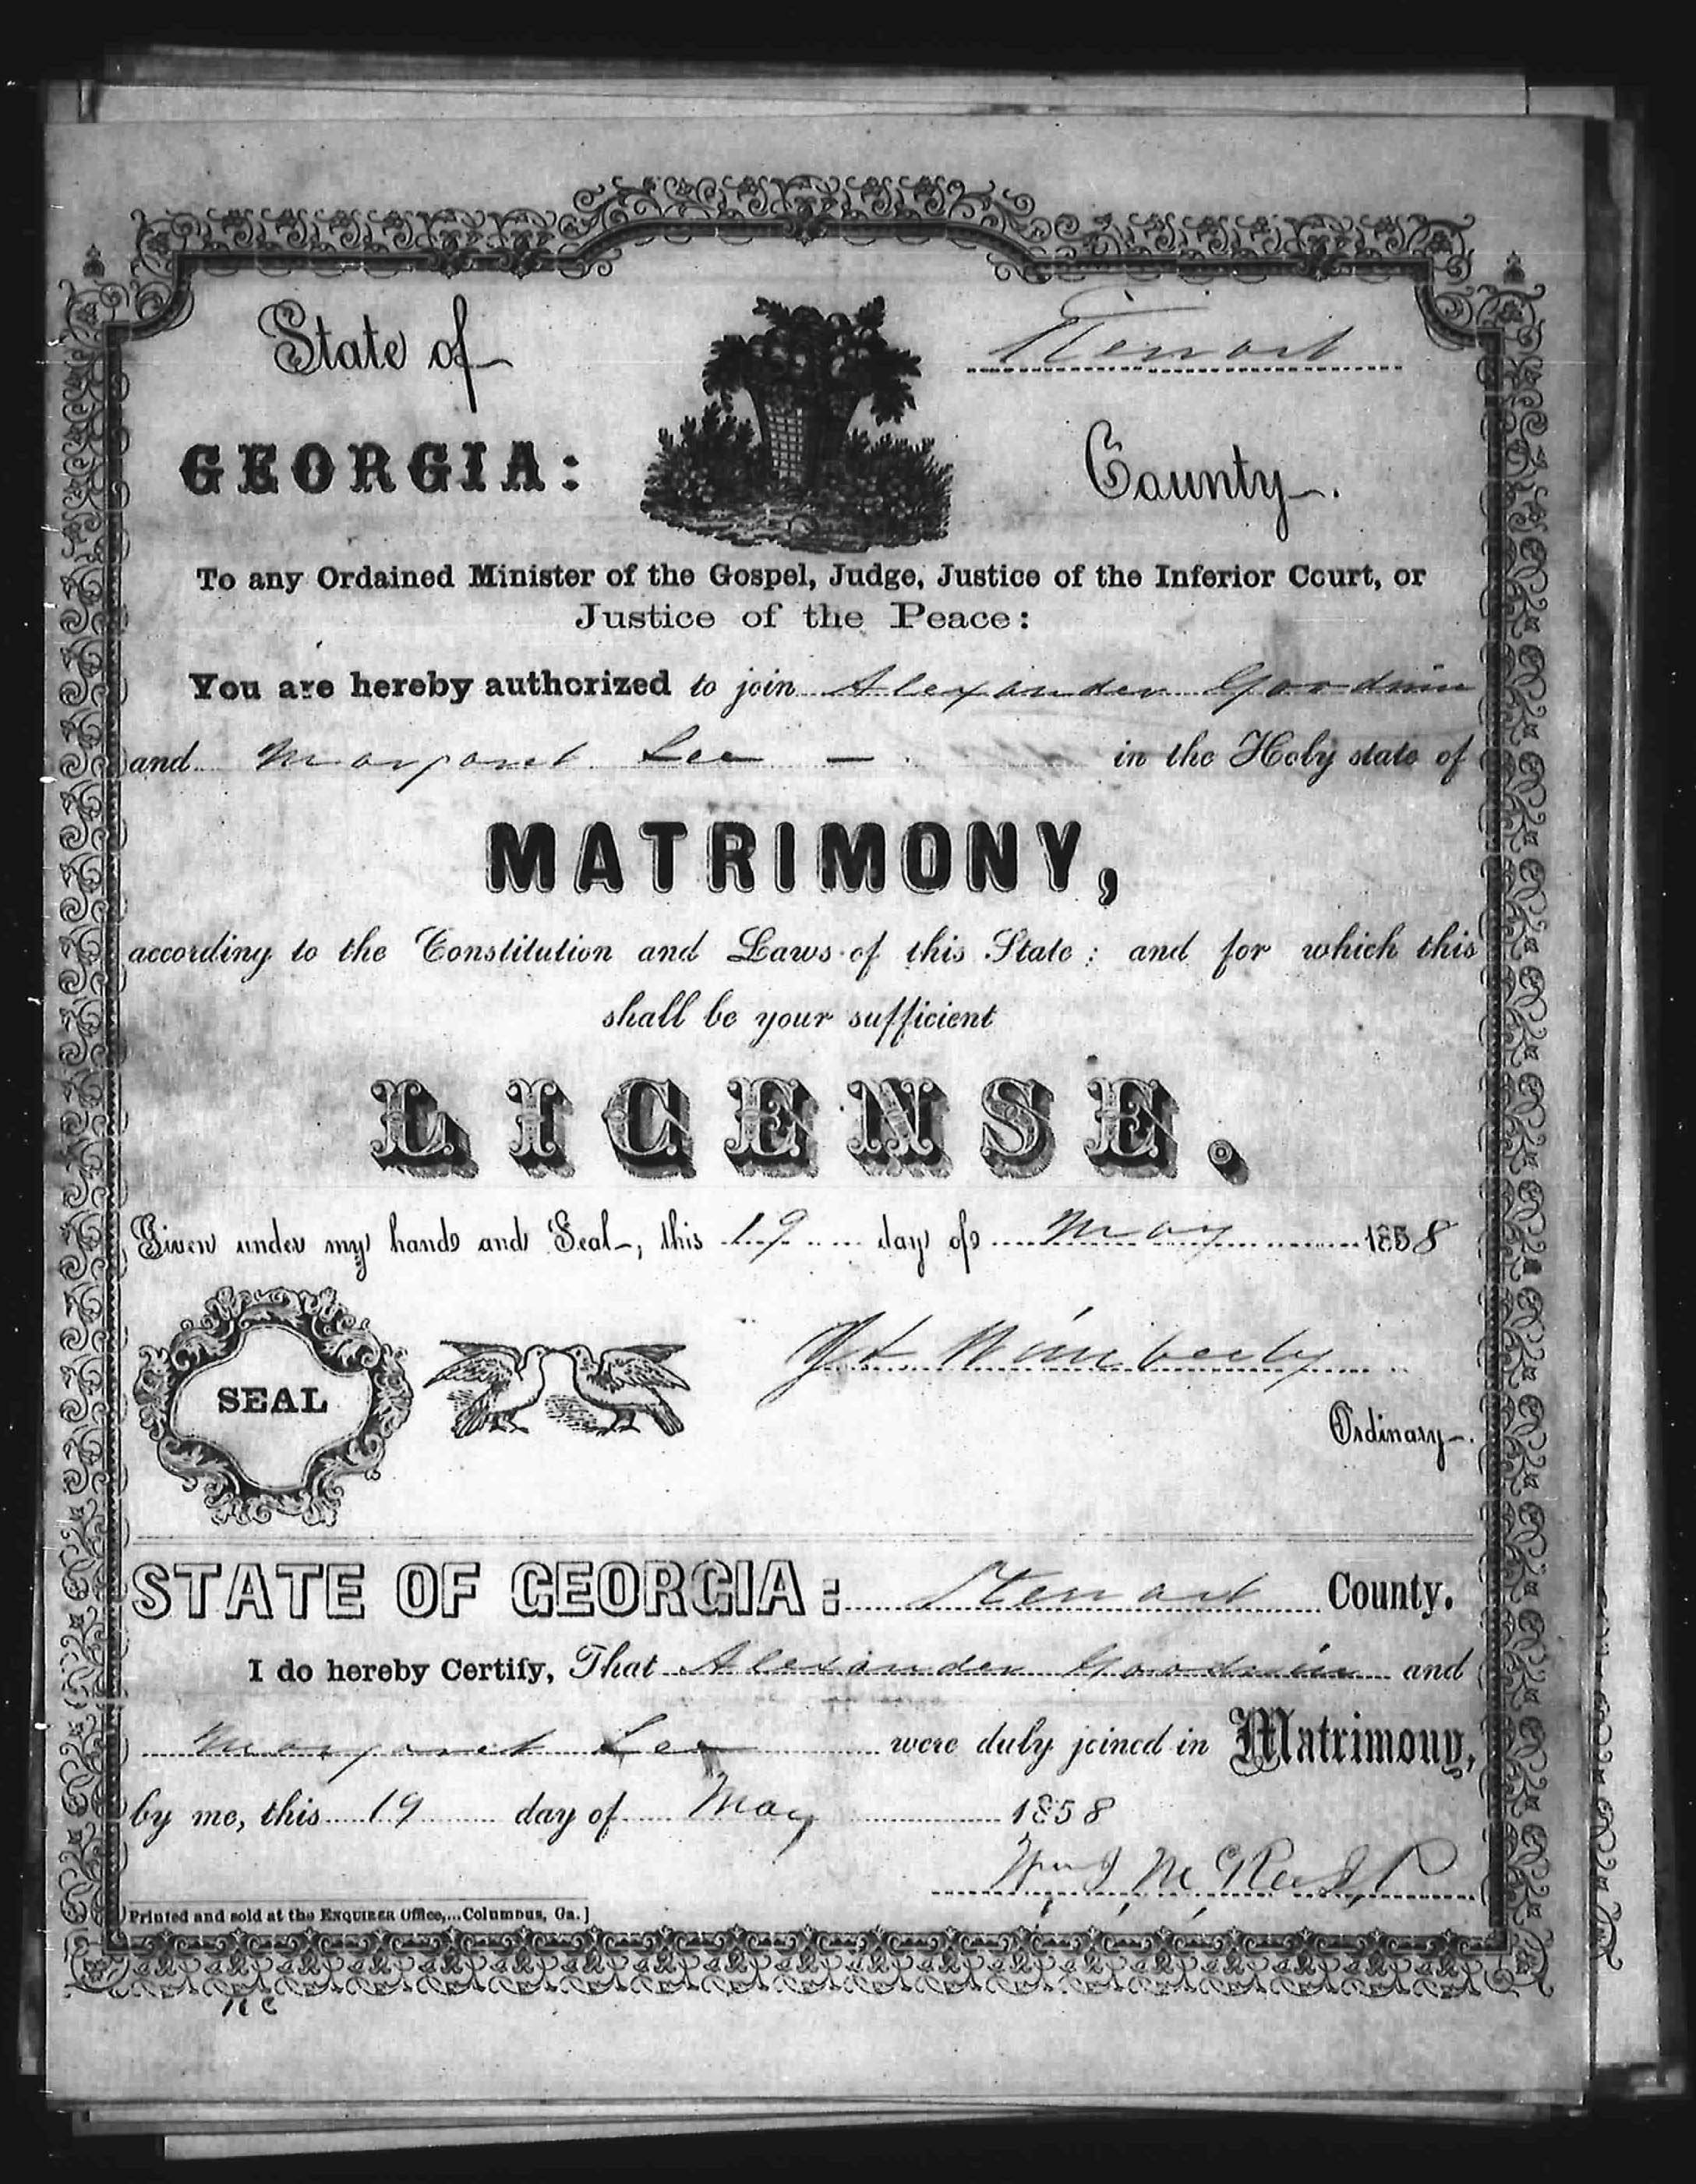 State of
Stewart
GEORGIA:
County.
To any Ordained Minister of the Gospel, Judge, Justice of the Inferior Court, or
Justice of the Peace:
You are hereby authorized to join Alexander Goodwin
and Margaret Lee — in the Holy state of
MATRIMONY,
according to the Constitution and Laws of this State; and for which this
shall be your sufficient
LICENSE.
Given under my hand and Seal, this 19 day of May 1858
SEAL
Wimberly
Ordinary.
STATE OF GEORGIA: Stewart County.
I do hereby Certify, That Alexander Goodwin and
Margaret Lee were duly joined in Matrimony,
by me, this 19 day of May 1858
Wm J
[Printed and sold at the ENQUIRER Office,...Columbus, Ga.]